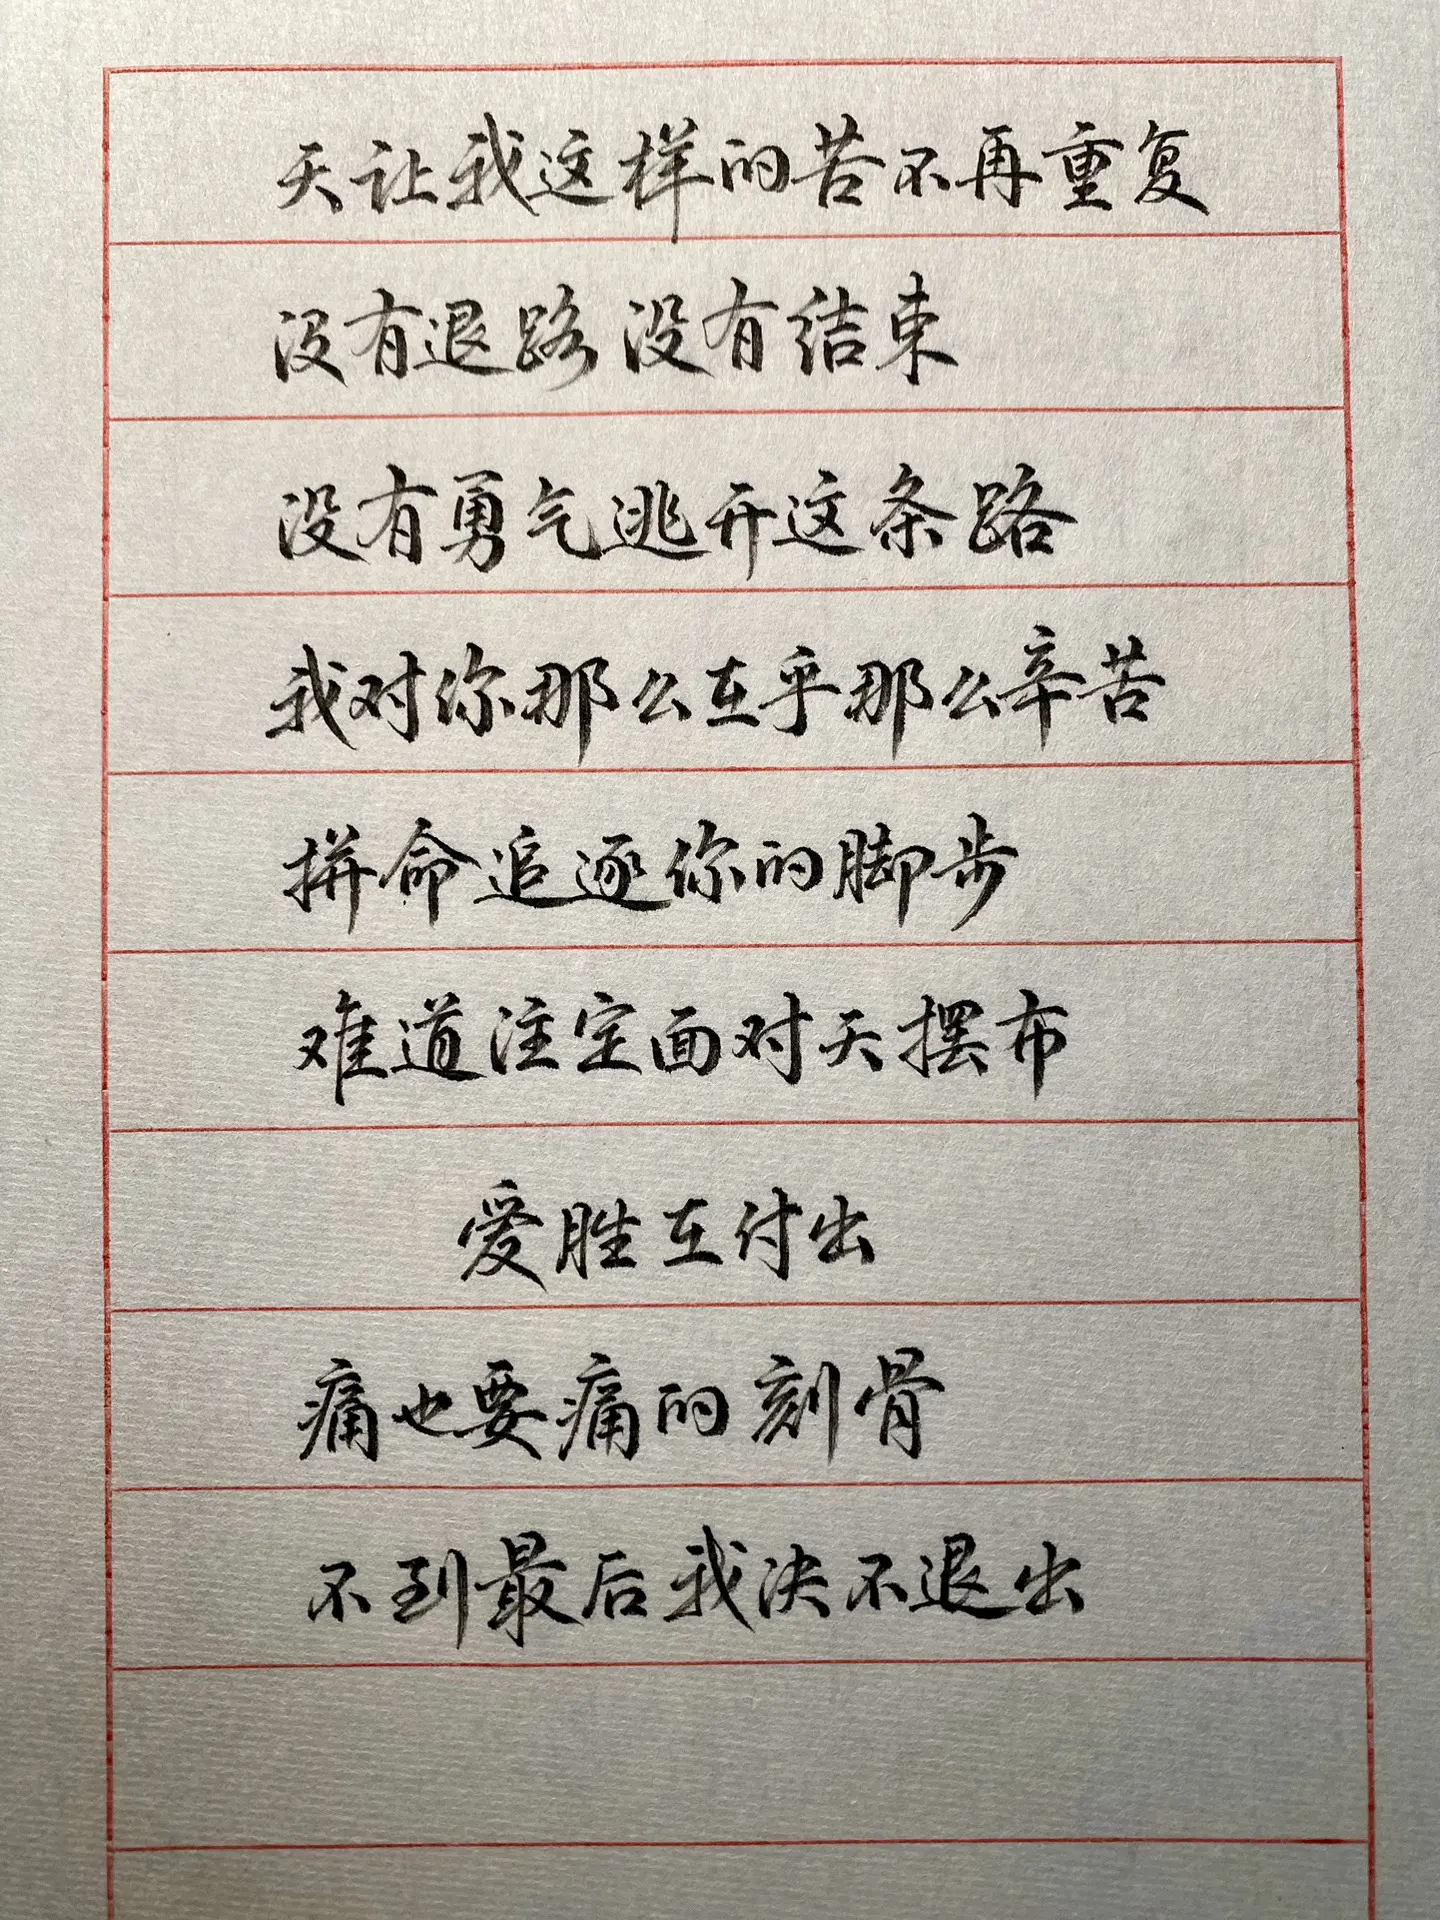 天让我这样的苦不再重复
没有退路 没有结束
没有勇气逃开这条路
我对你那么在乎那么辛苦
拼命追逐你的脚步
难道注定面对天摆布
爱胜在付出
痛也要痛的刻骨
不到最后我决不退出